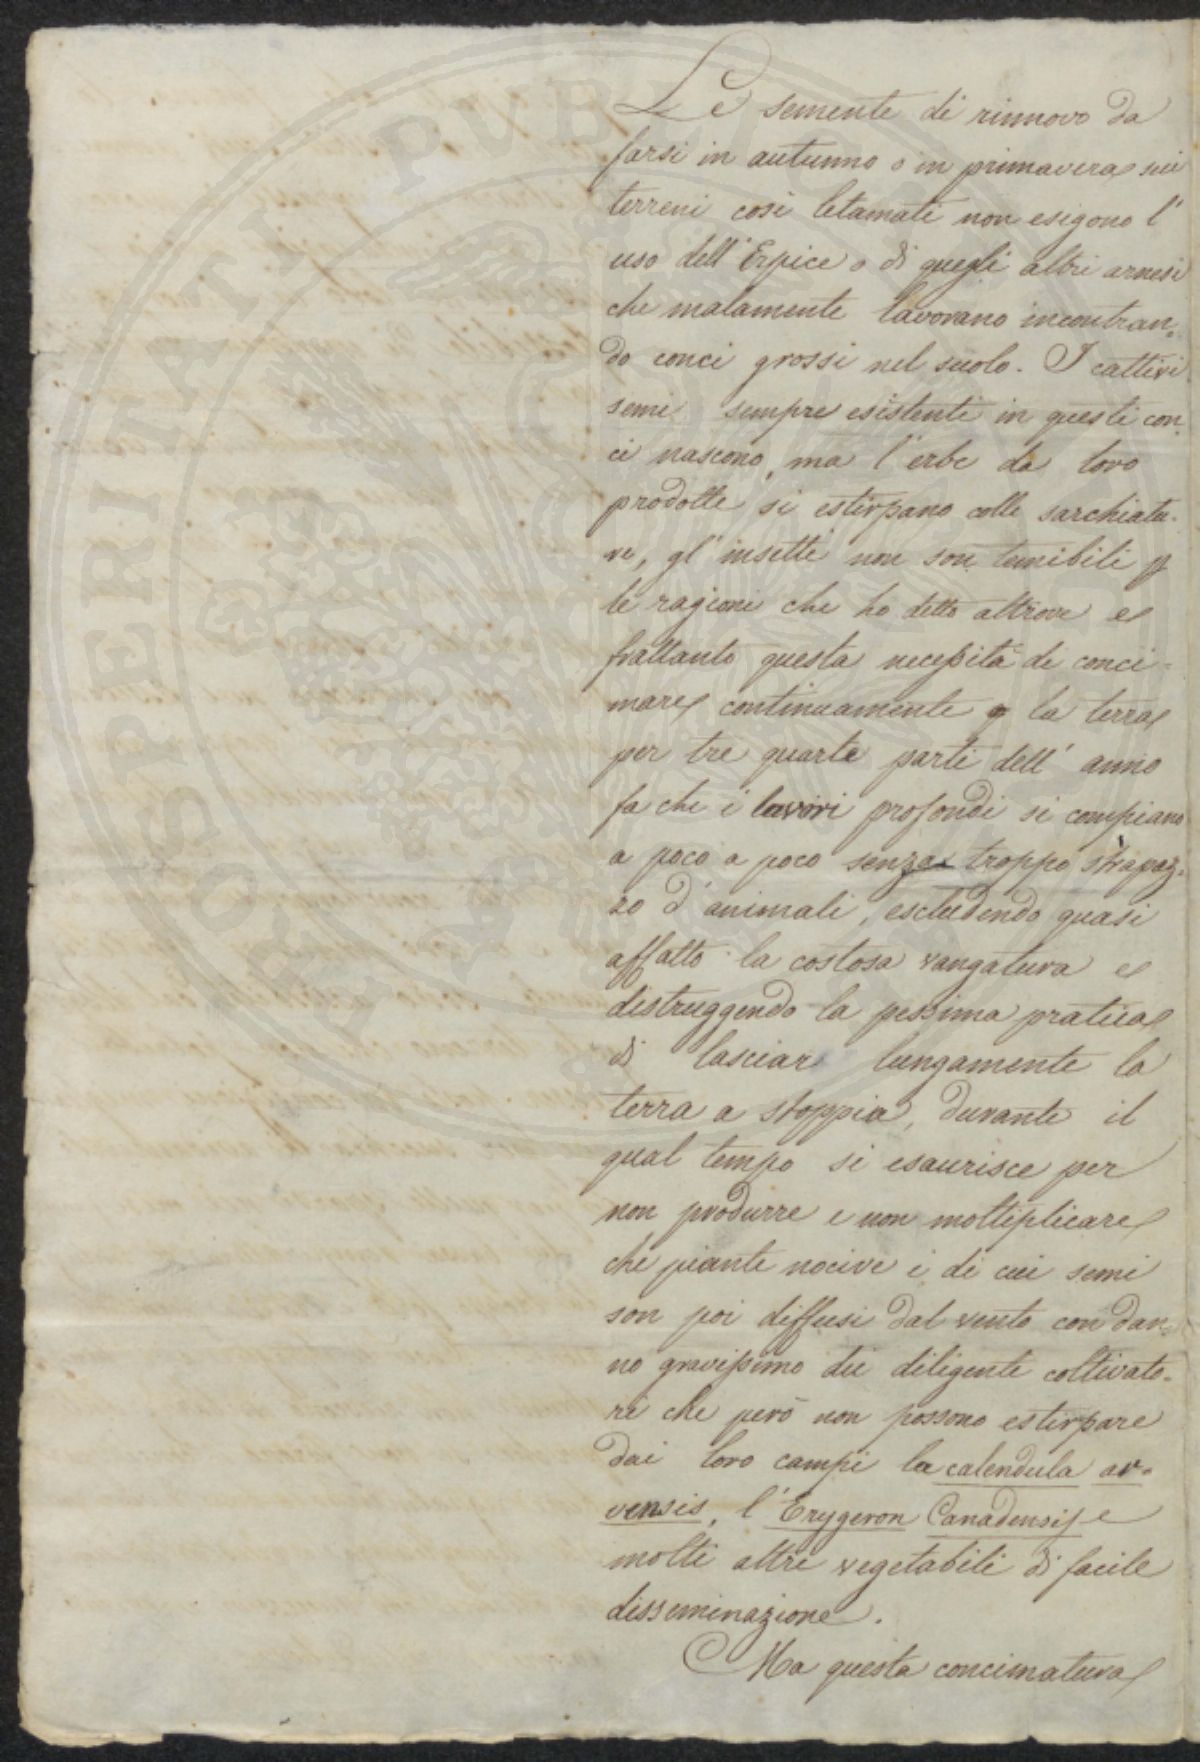 Le semente di rinnovo da
farsi in autunno o in primavera sui
terreni così letamati non esigono l'
uso dell'Erpice o di quegli altri arnesi
che malamente lavorano incontran=
do conci grossi nel suolo. I cattivi
semi sempre esistenti in questi con=
ci nascono, ma l'erbe da loro
prodotte si estirpano colle sarchiatu=
re, gl'insetti non son temibili p
le ragioni che ho detto altrove e
frattanto questa necessità di conci=
mare continuamente la terra
per tre quarte parti dell'anno
fa che i lavori profondi si compiano
a poco a poco senza troppo strapaz=
zo d'animali, escludendo quasi
affatto la costosa vangatura e
distruggendo la pessima pratica
di lasciar lungamente la
terra a stoppia, durante il
qual tempo si esaurisce per
non produrre e non moltiplicare
che piante nocive i di cui semi
son poi diffusi dal vento con dan=
no gravissimo dei diligenti coltivato=
ri che però non possono estirpare
dai loro campi la calendula ar=
vensis, l'Erygeron Canadensis e
molti altri vegetabili di facile
disseminazione.
Ma questa concimatura